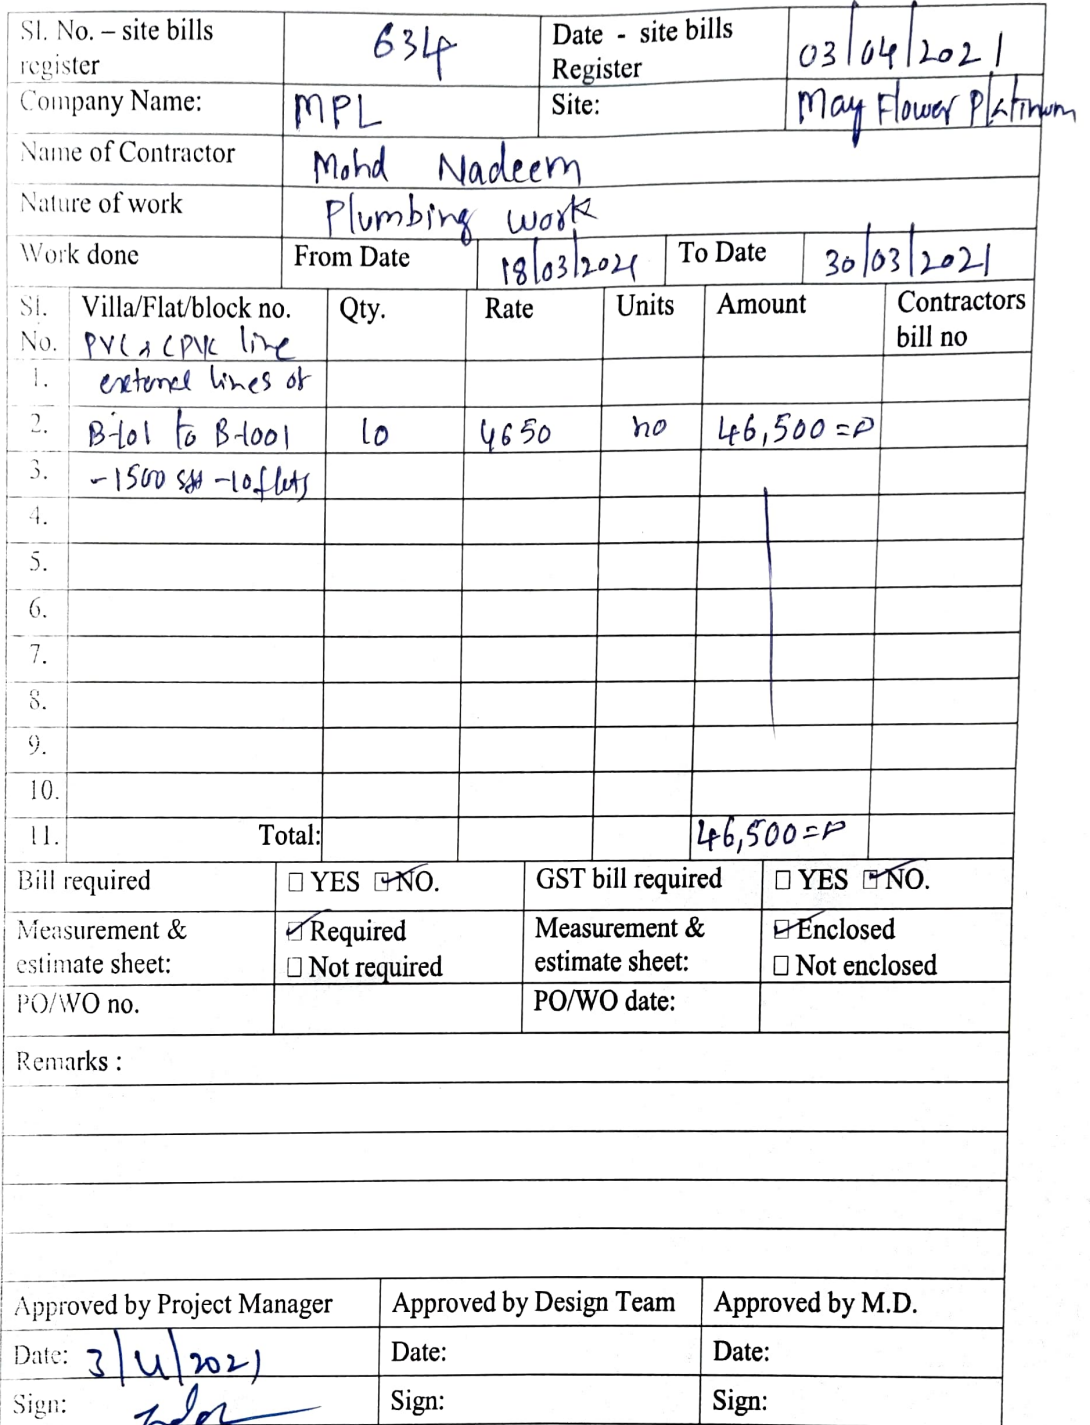 Sl. No. – site bills register 634 Date - site bills Register 03/04/2021
Company Name: MPL Site: May Flower Platinum
Name of Contractor Mohd Nadeem
Nature of work Plumbing work
Work done From Date 18/03/2021 To Date 30/03/2021
Sl. No. Villa/Flat/block no. Qty. Rate Units Amount Contractors bill no
PVC & CPVC line
1. external lines of
2. B-101 to B-1001 10 4650 no 46,500=P
3. -1500 sft -10 flats
4.
5.
6.
7.
8.
9.
10.
11. Total: 46,500=P
Bill required ☐ YES ☑ NO. GST bill required ☐ YES ☑ NO.
Measurement & estimate sheet: ☑ Required ☐ Not required Measurement & estimate sheet: ☑ Enclosed ☐ Not enclosed
PO/WO no. PO/WO date:
Remarks :
Approved by Project Manager Approved by Design Team Approved by M.D.
Date: 3/4/2021 Date: Date:
Sign: Sign: Sign: